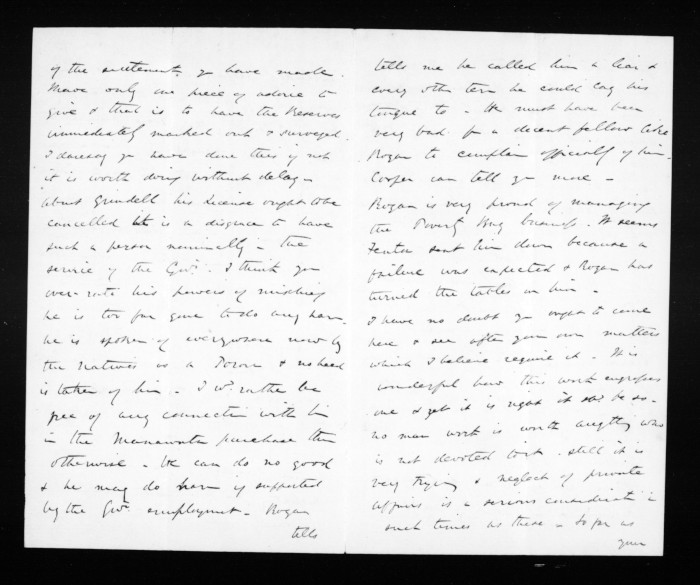 of the settlement you have made.
I have only one piece of advice to
give & that is to have the Reserves
immediately marked out & surveyed.
I daresay you have done this if not
it is worth doing without delay -
About Grindell his License ought to be
cancelled it is a disgrace to have
such a person nominally in the
service of the Govt. I think you
over-rate his powers of mischief
he is too far gone to do any harm
he is spoken of everywhere now by
the Natives as a & no heed
is taken of him - I wd. rather be
free of any connection with him
in the Manawatu purchase than
otherwise - He can do no good
& he may do harm if supported
by the Govt. employment - Rogan
tells
tells me he called him a liar &
every other term he could lay his
tongue to - He must have been
very bad for a decent fellow like
Rogan to complain officially of him -
Cooper can tell you more -
Rogan is very proud of managing
the Poverty Bay business. It seems
Fenton sent him down because a
failure was expected & Rogan has
turned the tables on him -
I have no doubt you ought to come
here & see after your own matters
which I believe require it - It is
wonderful how this work engrosses
one & yet it is right it shd. be so -
no man's work is worth anything who
is not devoted to it. Still it is
very trying & neglect of private
affairs is a serious consideration in
such times as these - So far as
your